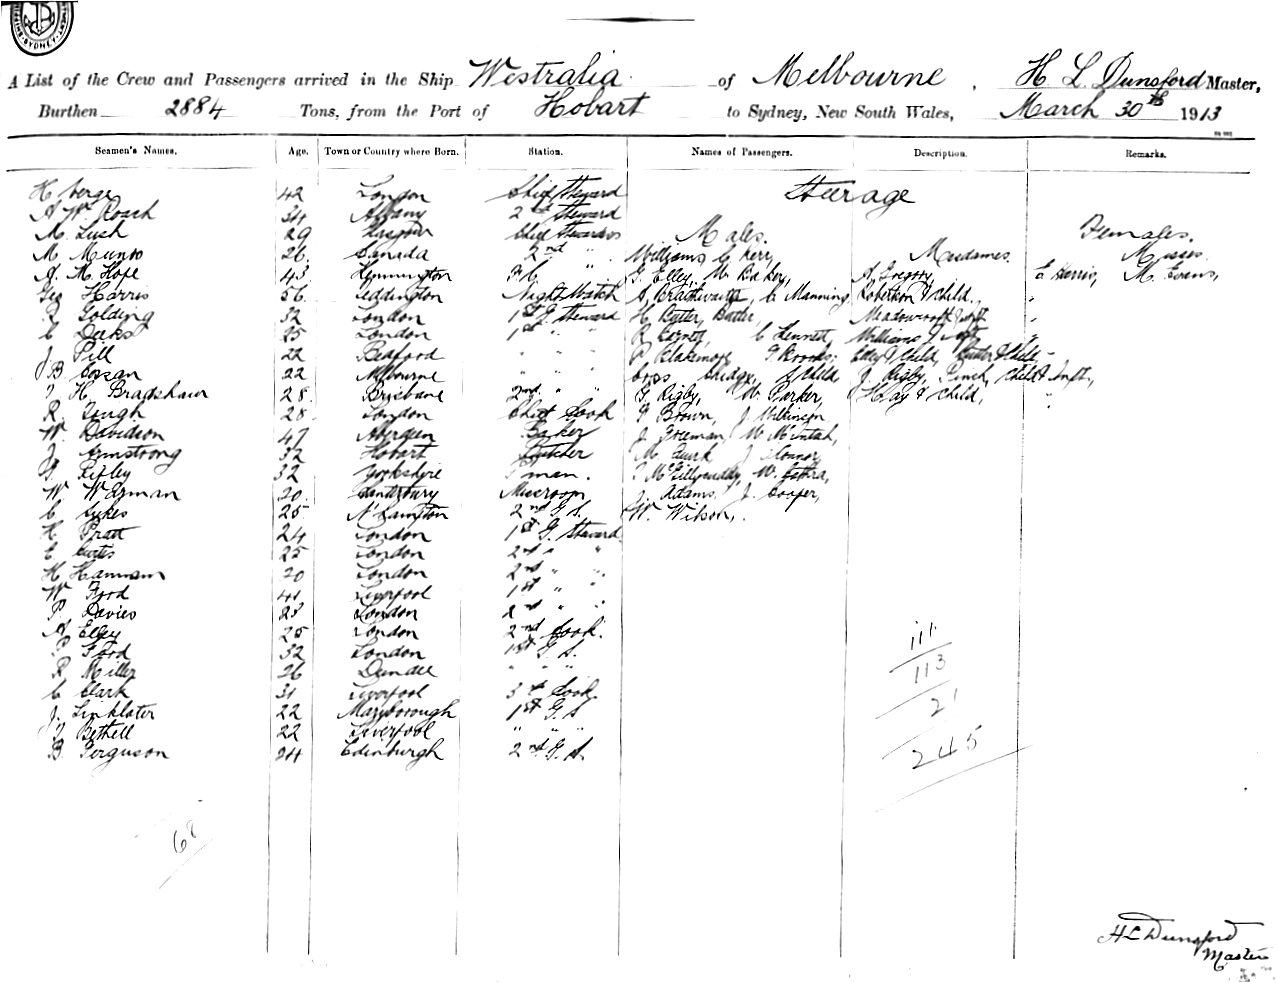 SYDNEY
A List of the Crew and Passengers arrived in the Ship Westralia of Melbourne, H L Dunsford Master,
Burthen 2884 Tons, from the Port of Hobart to Sydney, New South Wales, March 30th 1913
Seamen's Names. Age. Town or Country where Born. Station. Names of Passengers. Description. Remarks.
H 42 London Chief Steward Steerage
A Wm Roach 34 Albany 2nd Steward
M. Lush 29 Glasgow Chief Stewardess Males. Females.
M Munro 26 Canada 2nd " Williams, C Kerr, Mesdames Misses
A. M Hope 43 Lymington G. Elley, W Baker, A Gregory, E Harris, M. Evans,
Geo Harris 56 Teddington Night Watch S. Braithwaite, C Manning, Robertson & child, "
R Golding 32 London 1st G. Steward H Butler, Butler, Meadowcroft & inft "
C Deeks 25 London 1st " " R C Lennett, Williams & inft "
J. Pill 22 Bedford " " " P Blakemore G Brooks, Elley & child, Butler & child
J B 22 Melbourne " " " & child J Rigby, Punch, child & inft,
T H Bradshaw 28 Brisbane 2nd " " G Rigby, W. Parker, J Hay & child, "
R. Gough 28 London Chief Cook G Brown, J Wilkinson
W. Davidson 47 Aberdeen Baker J Freeman, W McIntosh,
J Armstrong 32 Hobart Butcher M Quirk, J Connor
G Ripley 32 Yorkshire P'man. W.
W Wyman 20 Canterbury Messroom J. Adams. J. Cooper,
C Sykes 25 N'hampton 2nd G S. W. Wilson,
H Pratt 24 London 1st G. Steward
C Curtis 25 London 2nd " "
H Hannam 20 London 2nd " "
W Ford 41 Liverpool 1st " "
P Davies 23 London 2nd " "
A Elley 25 London 2nd Cook. 111
P Ford 32 London 1st G S. 113
R Miller 26 Dundee " " "
C Clark 31 Liverpool 3rd Cook 21
J. Linklater 22 Maryborough 1st G. S
T Bethell 22 Liverpool " " "
B Ferguson 24 Edinburgh 2nd G. S. 245
68
H L Dunsford
Master